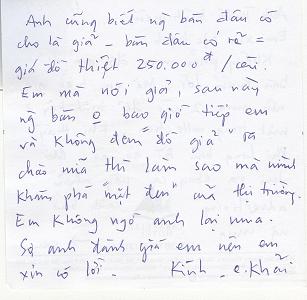 Anh cũng biết ng bán đâu có
cho là giả – bán đâu có rẻ =
giá đồ thiệt 250.000đ /cái.
Em mà nói giả, sau này
ng bán o bao giờ tiếp em
và không đem "đồ giả" ra
chào nữa thì làm sao mà mình
khám phá "mặt đen" của thị trường.
Em không ngờ anh lại mua.
Sợ anh đánh giá em nên em
xin có lời. Kính, e. Khải